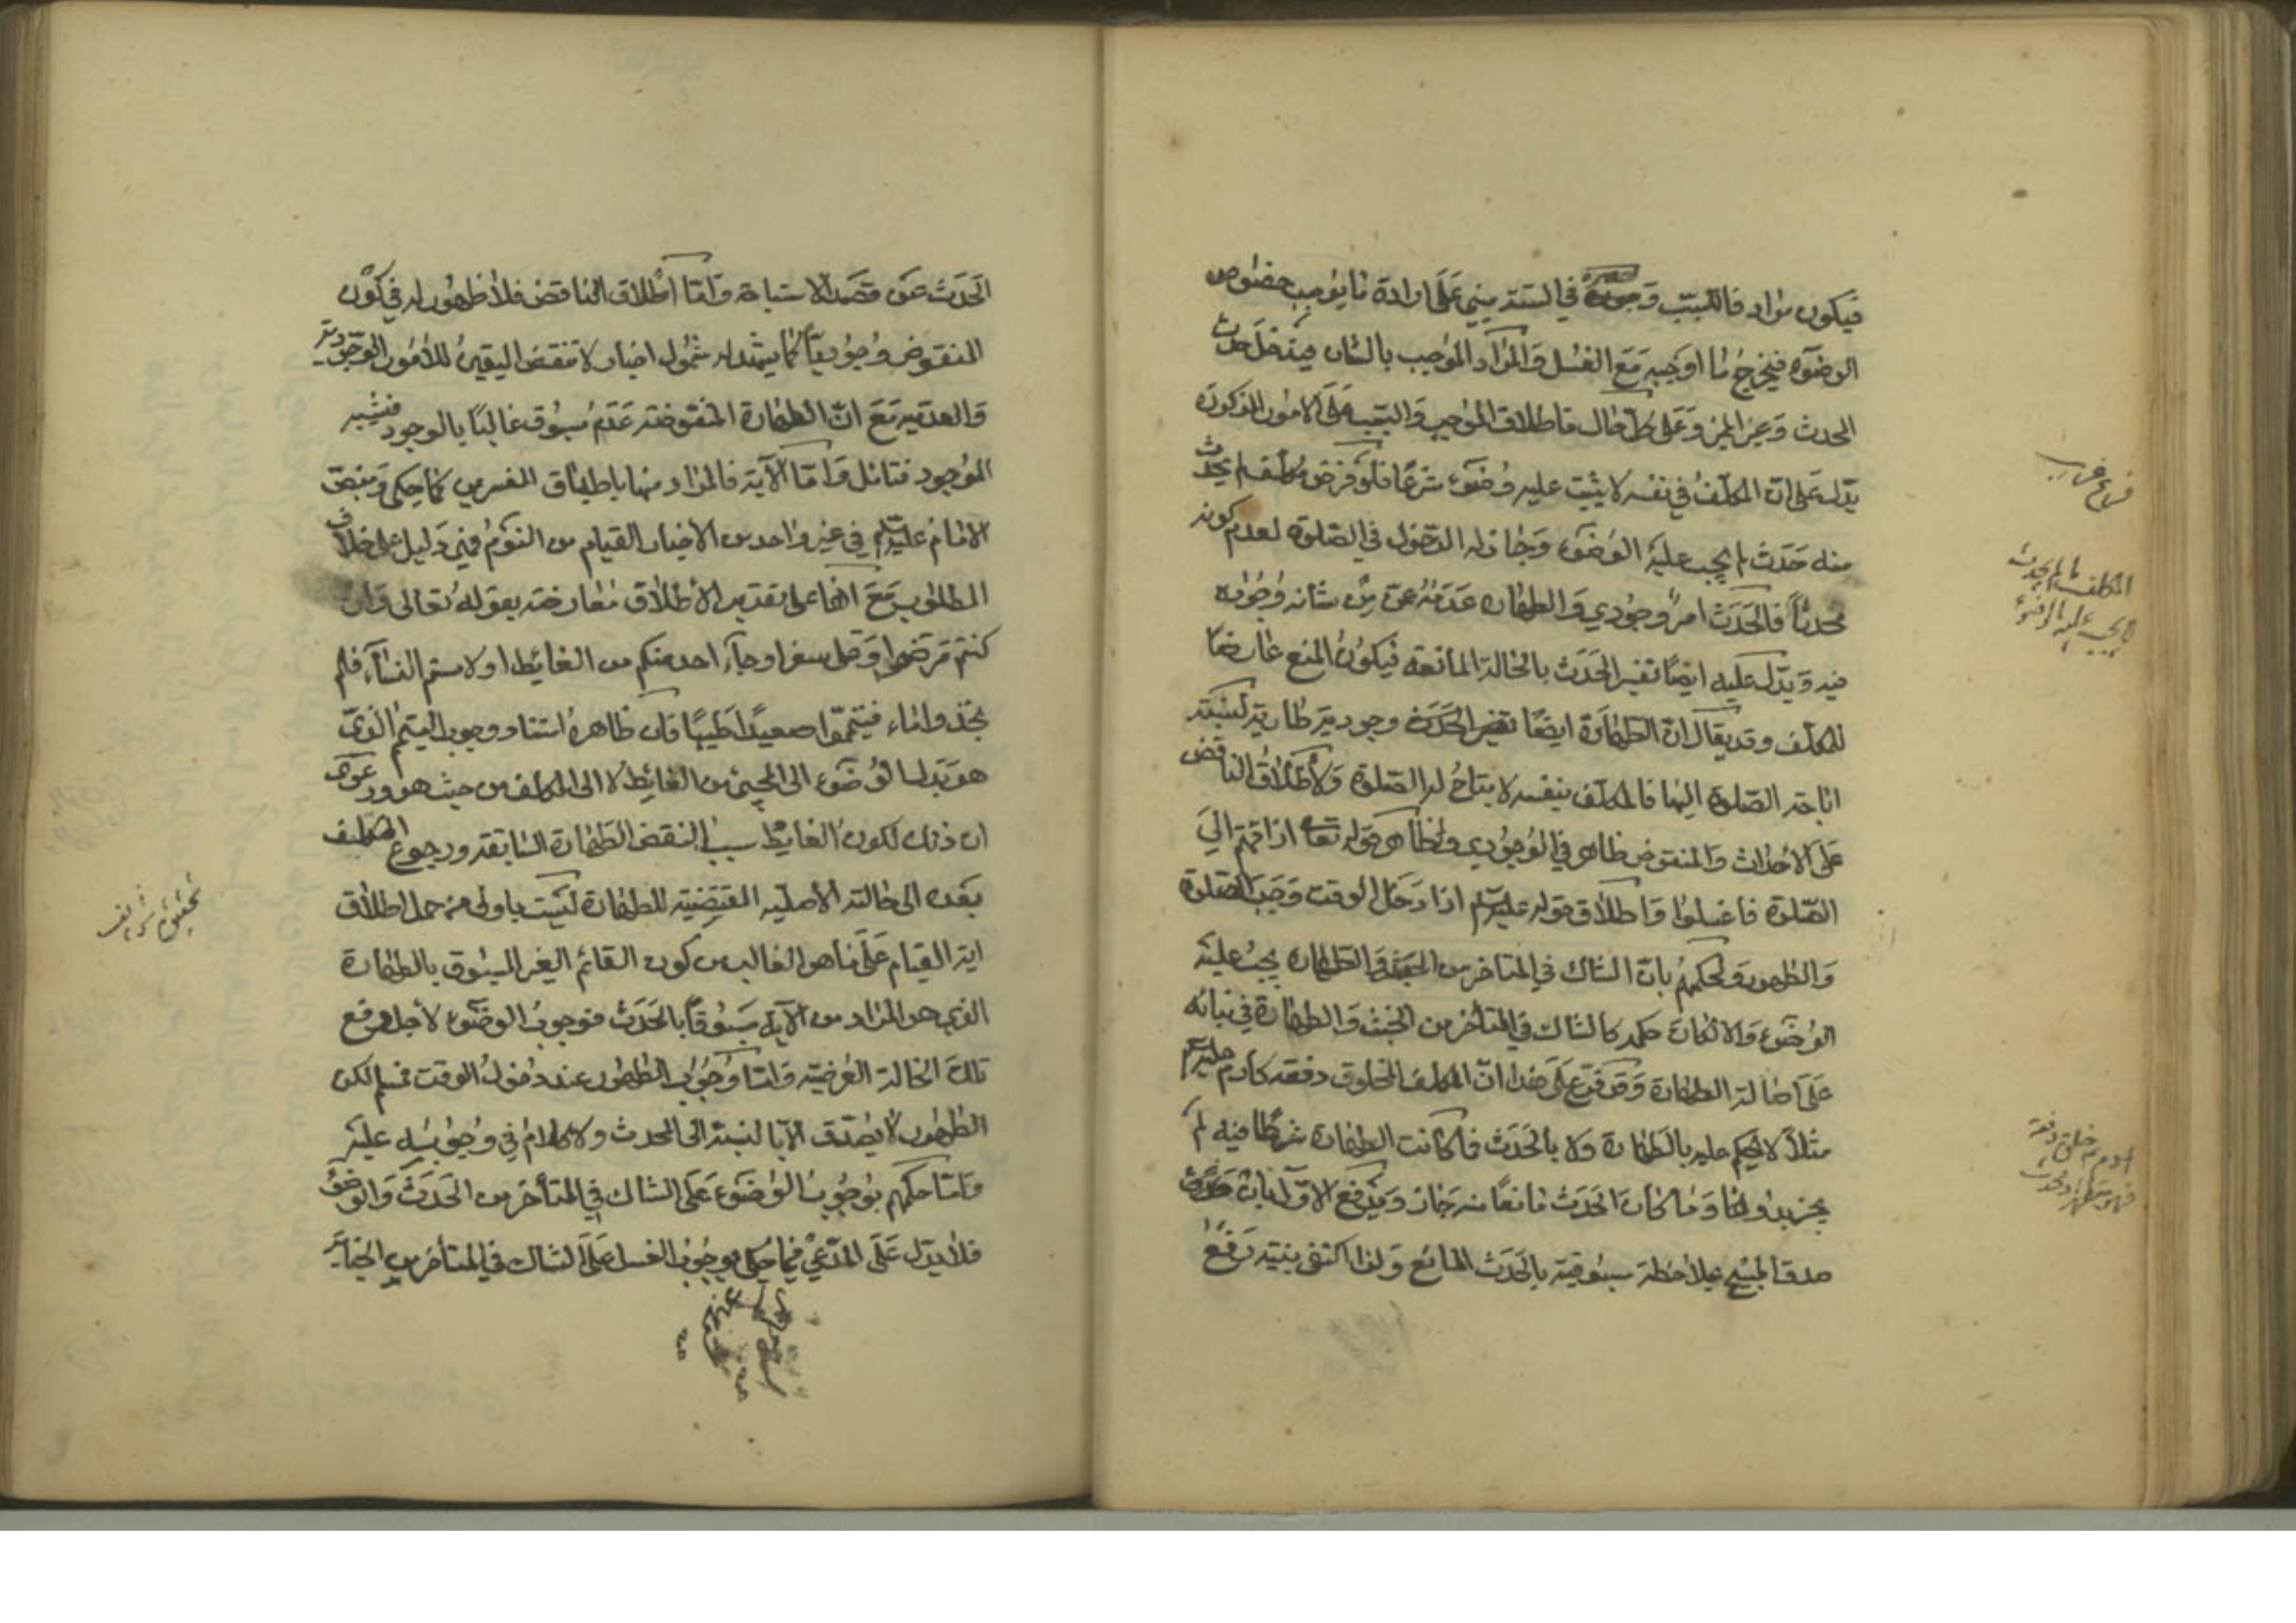 فيكون مراد فالسبب وجوده في السنة مبني على ارادة ما يوجب خصوص
الوضوء فيخرج ما اوجبه مع الغسل والمراد الموجب بالشان فيدخل حدث
الحدث وغير المميز وعلى كل حال فاطلاق الموجب والسبب على الامور المذكورة
يدل على ان المكلف في نفسه لا يثبت عليه وضوء شرعا فلو فرض مكلف لم يحدث
منه حدث لم يجب عليه الوضوء وجاز له الدخول في الصلوة لعدم كونه
محدثا فالحدث امر وجودي والطهارة عدمه عمن من شانه وجوده
فيه ويدل عليه ايضا تفسير الحدث بالحالة المانعة فيكون المنع عارضا
للمكلف وقد يقال ان الطهارة ايضا نقيض الحدث وجودية طارية لنسبته
اباحة الصلوة اليها فالمكلف بنفسه لا يباح له الصلوة ولاطلاق الناقض
على الاحداث والمنقوض ظاهر في الوجودي ولظاهر قوله تعالى اذا قمتم الى
الصلوة فاغسلوا واطلاق قوله عليه السلم اذا دخل الوقت وجب الصلوة
والطهور ولحكمهم بان الشاك في المتاخر من الحدث والطهارة يجب عليه
الوضوء والا لكان حكمه كالشاك في المتاخر من الخبث والطهارة في بنائه
على اصالة الطهارة وقد فرع على هذا ان المكلف المخلوق دفعة كادم عليه السلم
مثلا لا يحكم عليه بالطهارة ولا بالحدث فما كانت الطهارة شرطا فيه لم
يجز بدونها وما كان الحدث مانعا منه جاز ويدفع الاول بان
صدق المبيح بملاحظة مسبوقيته بالحدث المانع ولذا اكتفى بنية رفع
فرع غريب
المكلف ما لم يحدث
لا يجب عليه الوضوء
ادم خلق دفعة
الحدث عن قصد الاستباحة واما اطلاق الناقض فلا ظهور له في كون
المنقوض وجوديا كما يشهد له شمول اخبار لا تنقض اليقين للامور الوجودية
والعدمية مع ان الطهارة المنقوضة عدم مسبوق غالبا بالوجود فتشبه
الموجود فتامل واما الآية فالمراد منها باطباق المفسرين كما حكي وبنص
الامام عليه السلم في غير واحد من الاخبار القيام من النوم فهي دليل على خلاف
المطلوب مع انها على تقدير الاطلاق معارضة بقوله تعالى وان
كنتم مرضى او على سفر او جآء احد منكم من الغائط او لامستم النسآء فلم
تجدوا ماء فتيمموا صعيدا طيبا فان ظاهره استناد وجوب التيمم الذي
هو بدل الوضوء الى المجيئ من الغائط لا الى المكلف من حيث هو ودعوى
ان ذلك لكون الغايط سببا لنقض الطهارة السابقة ورجوع المكلف
بعده الى حالته الاصلية المقتضية للطهارة ليست باولى من حمل اطلاق
اية القيام على ما هو الغالب من كون القائم الغير المسبوق بالطهارة
الذي هو المراد من الآية مسبوقا بالحدث فوجوب الوضوء لاجل رفع
تلك الحالة العرضية واما وجوب الطهور عند دخول الوقت فمسلم لكن
الطهور لا يصدق الا بالنسبة الى المحدث ولا كلام في وجوبه عليه
واما حكمهم بوجوب الوضوء على الشاك في المتأخر من الحدث والوضوء
فلا يدل على المدعي فيما حكي بوجوب الغسل على الشاك في المتأخر من الجنابة
تحقيق شريف